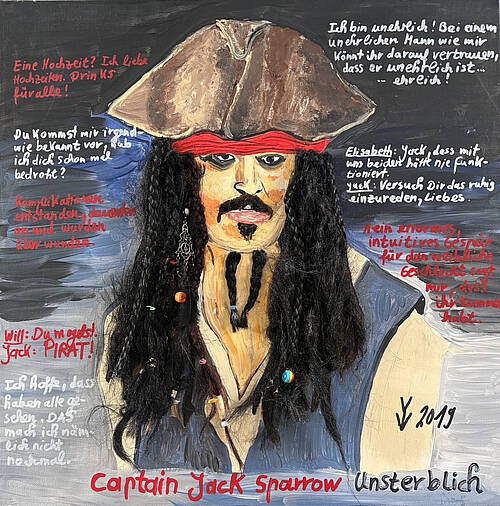 Eine Hochzeit? Ich liebe
Hochzeiten. Drinks
für alle!
Du kommst mir irgend-
wie bekannt vor, hab
ich dich schon mal
bedroht?
Komplikationen
entstanden, dauerten
an und wurden
überwunden.
Will: Du mogelst!
Jack: PIRAT!
Ich hoffe, dass
haben alle ge-
sehen. DAS
mach ich näm-
lich nicht
nochmal.
Ich bin unehrlich! Bei einem
unehrlichen Mann wie mir
könnt ihr darauf vertrauen,
dass er unehrlich ist...
... ehrlich!
Elisabeth: Jack, dass mit
uns beiden hätte nie funk-
tioniert.
Jack: Versuch Dir das ruhig
einzureden, Liebes.
Mein enormes,
intuitives Gespür
für das weibliche
Geschlecht sagt
mir, dass
ihr Kummer
habt.
2019
Captain Jack Sparrow Unsterblich